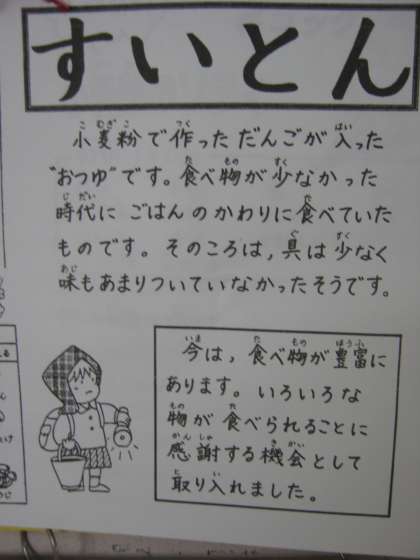 すいとん
小麦粉で作っただんごが入った
"おつゆ"です。食べ物が少なかった
時代にごはんのかわりに食べていた
ものです。そのころは,具は少なく
味もあまりついていなかったそうです。
今は,食べ物が豊富に
あります。いろいろな
物が食べられることに
感謝する機会として
取り入れました。